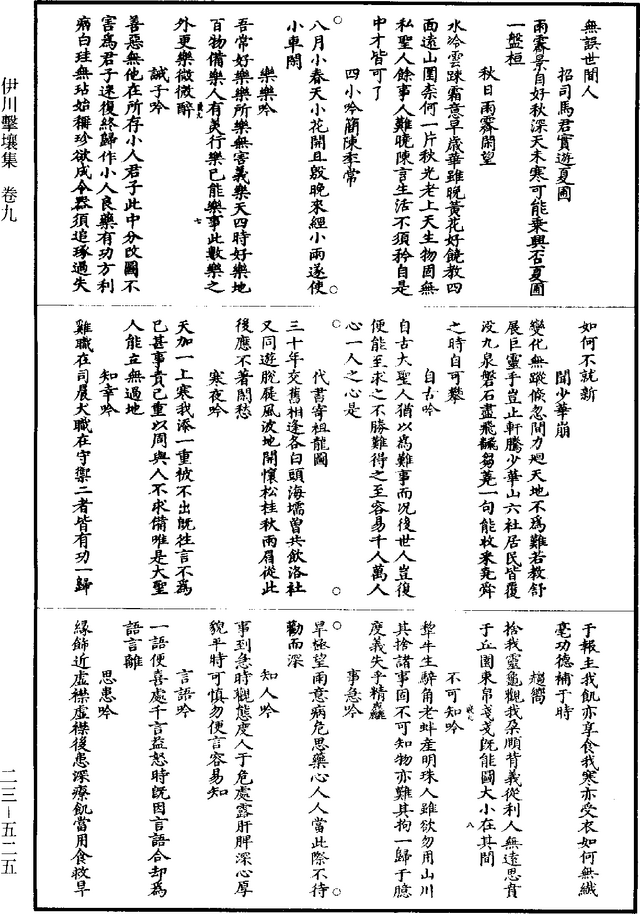 無誤世間人
招司馬君實遊夏圃
雨霽景自好秋深天未寒可能乘興否夏圃
一盤桓
秋日雨霽閒望
水冷雲踈霜意早歲華雖晚黃花好饒教四
面遠山圍柰何一片秋光老上天生物固無
私聖人餘事人難曉陳言生活不須矜自是
中才皆可了
四小吟簡陳季常
八月小春天小花開且殷晚來經小雨遂使
小車閒
樂樂吟
吾常好樂樂所樂無害義樂天四時好樂地
百物備樂人有美行樂己能樂事此數樂之
外更樂微微醉
七
誡子吟
善惡無他在所存小人君子此中分改圖不
害為君子迷復終歸作小人良藥有功方利
病白珪無玷始稱珍欲成令器須追琢過失
如何不就新
聞少華崩
變化無蹤倐忽間力迴天地不為難若教舒
展巨靈手豈止軒騰少華山六社居民皆覆
没九泉磐石盡飛翻芻蕘一句能收采堯舜
之時自可攀
自古吟
自古大聖人猶以為難事而況後世人豈復
便能至求之不勝難得之至容易千人萬人
心一人之心是
代書寄祖龍圖
三十年交舊相逢各白頭海壖曽共飲洛社
又同遊脫屣風波地開懷松桂秋兩眉從此
後應不著閒愁
寒夜吟
天加一上寒我添一重被不出既往言不為
已甚事責己重以周與人不求備唯是大聖
人能立無過地
知幸吟
雞職在司晨犬職在守禦二者皆有功一歸
于報主我飢亦享食我寒亦受衣如何無纎
毫功德補于時
趨嚮
捨我靈龜觀我朵頤背義從利人無遠思賁
于丘園束帛戔戔既能圖大小在其間
八
不可知吟
犂牛生騂角老蚌産明珠人雖欲勿用山川
其捨諸事固不可知物亦難其拘一歸于臆
度義失乎精麄
事急吟
旱極望雨意病危思藥心人人當此際不待
勸而深
知人吟
事到急時觀態度人于危處露肝脾深心厚
貌平時可慎勿便言容易知
言語吟
一語便喜處千言益怒時既因言語合却為
語言離
思患吟
緣飾近虚襟虚襟後患深療飢當用食救旱
伊川擊壤集 卷九
二三—五二五